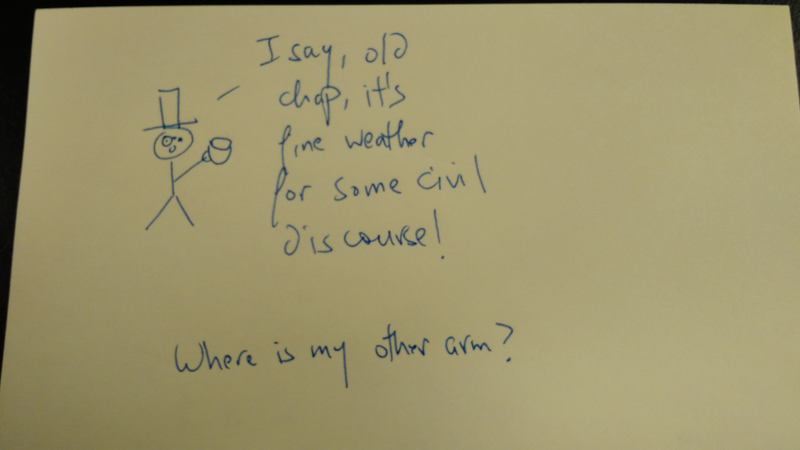 I say, old
chap, it's
fine weather
for some civil
discourse!
Where is my other arm?